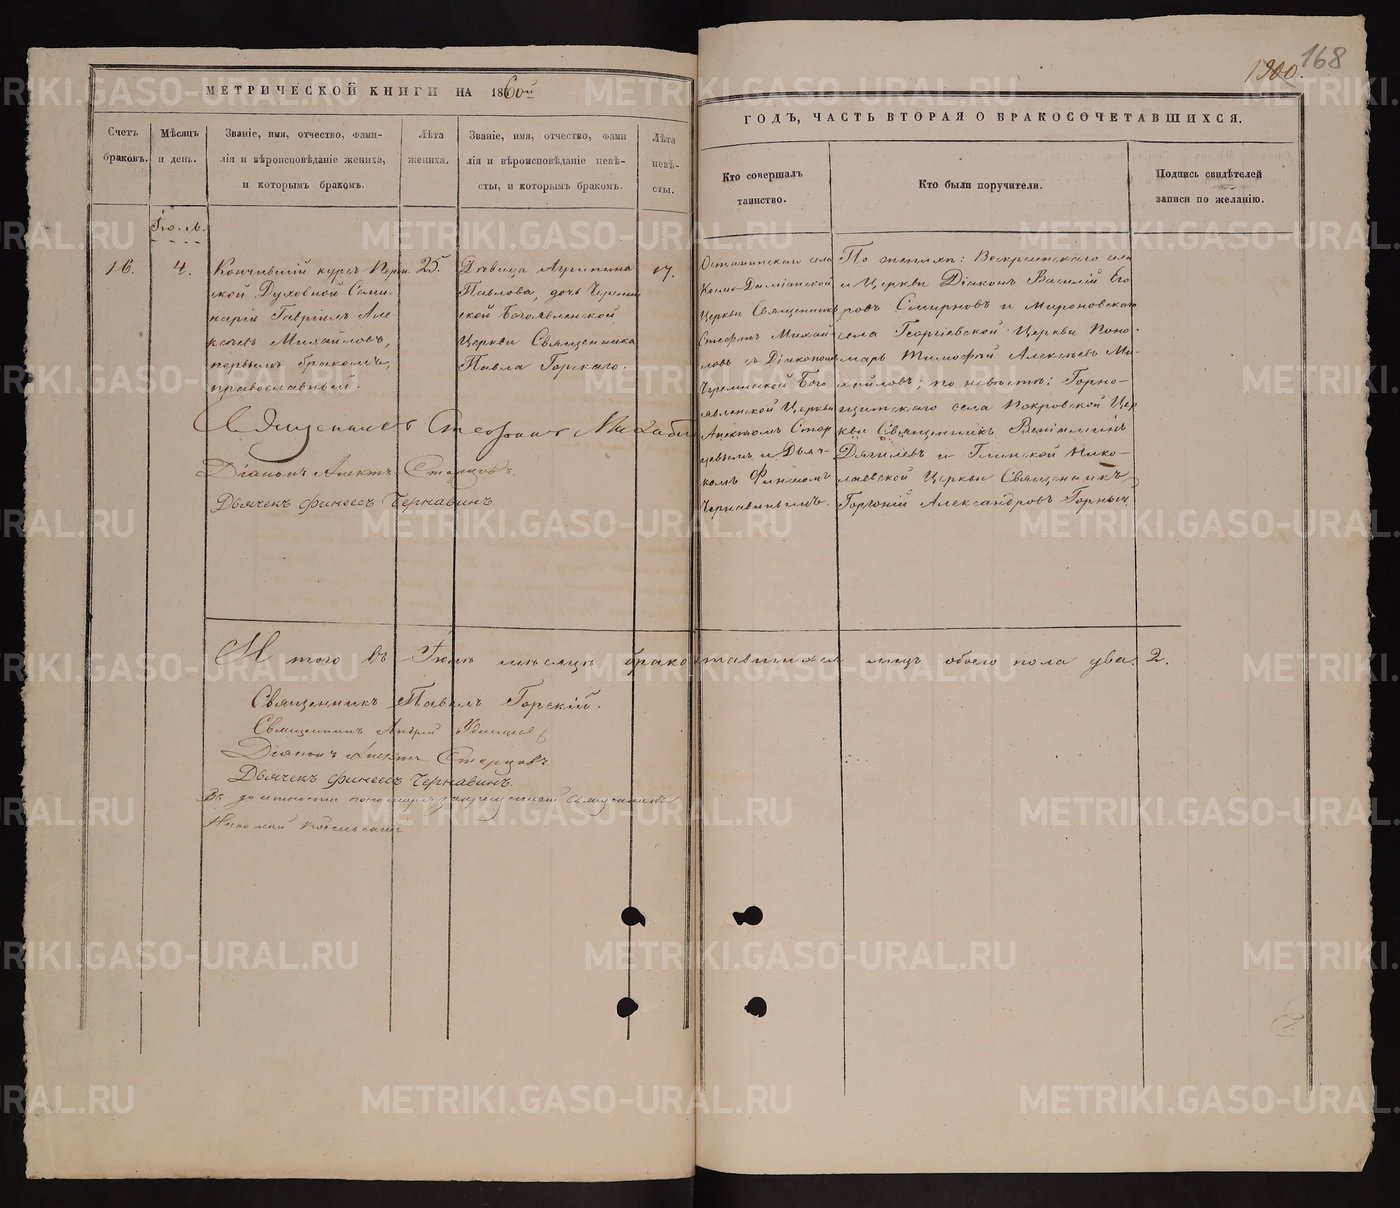 168
1900.
МЕТРИЧЕСКОЙ КНИГИ НА 1860й
ГОДЪ, ЧАСТЬ ВТОРАЯ О БРАКОСОЧЕТАВШИХСЯ.
Счетъ
браковъ.
Мѣсяцъ
и день.
Званіе, имя, отчество, фами-
лія и вѣроисповѣданіе жениха,
и которымъ бракомъ.
Лѣта
жениха.
Званіе, имя, отчество, фами
лія и вѣроисповѣданіе невѣ-
сты, и которымъ бракомъ.
Лѣта
невѣ-
сты.
Кто совершалъ
таинство.
Кто были поручители.
Подпись свидѣтелей
записи по желанію.
Іюль.
16.
4.
Кончившій курсъ Перм
ской Духовной Семи
наріи Гавріилъ Але
ксѣевъ Михайловъ,
первымъ бракомъ,
православный.
25.
Дѣвица Агрипина
Павлова, дочь Черемис
ской Богоявленской
Церкви Священника
Павла Горскаго.
17.
Останинскаго села
Космо-Даміанской
Церкви Священникъ
Стефанъ Михай
ловъ съ Діакономъ
Черемисской Бого
явленской Церкви
Старцовымъ и Дьяч-
комъ Финеесомъ
Чернавинымъ.
По женихѣ: Воскресенскаго села
и Церкви Діаконъ Василій Его
ровъ Смирновъ и Мироновскаго
села Георгіевской Церкви Поно-
марь Тимофей Алексѣевъ Ми-
хайловъ; по невѣстѣ: Горно-
щитскаго села Покровской Цер
кви Священникъ Веніаминъ
Дягилевъ и Глинской Нико-
лаевской Церкви Священникъ
Горгоній Александровъ Горныхъ
Священникъ Стефанъ Михайловъ
Діаконъ Старцовъ.
Дьячекъ Финеесъ Чернавинъ.
Итого въ Іюлѣ мѣсяцѣ бракосочетавшихся лицъ обоего пола два. 2.
Священникъ Павелъ Горскій.
Священникъ Андрей
Діаконъ Старцовъ
Дьячекъ Финеесъ Чернавинъ.
Въ должности пономаря священникъ
Николай
METRIKI.GASO-URAL.RU